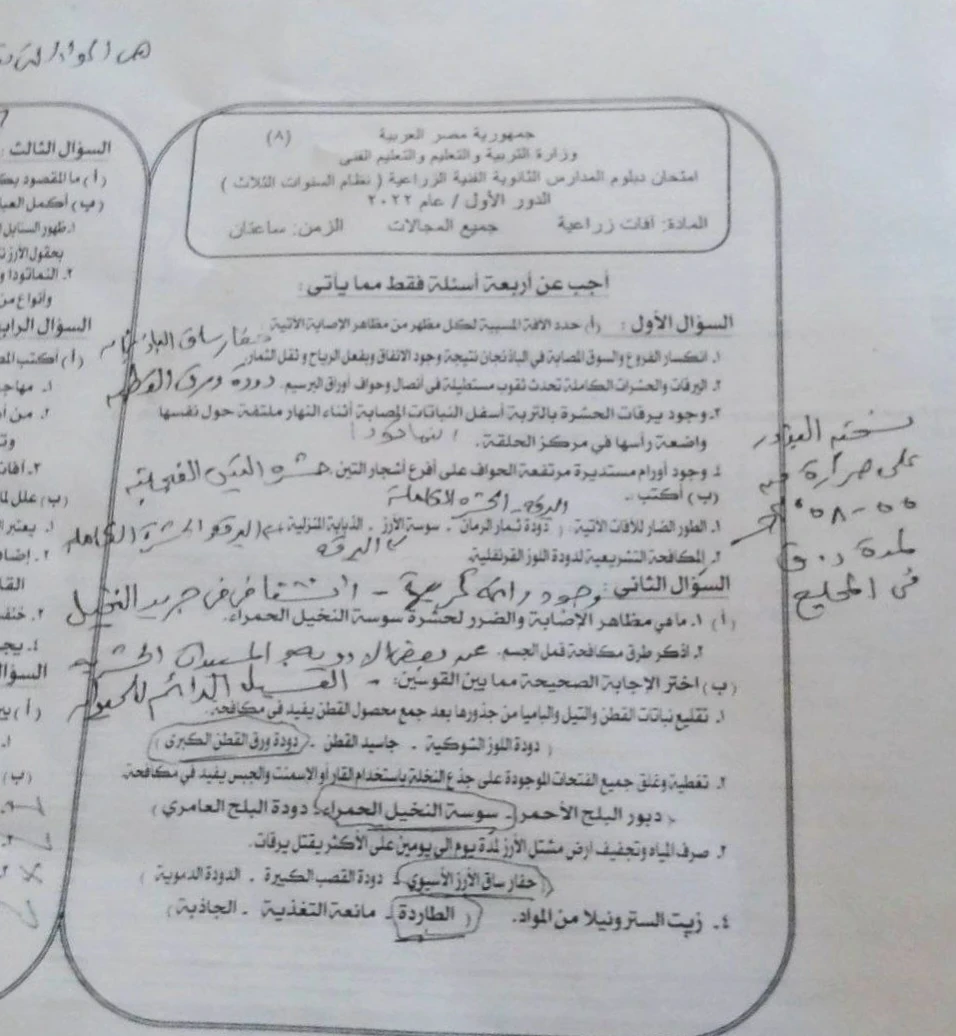 هي المواد
جمهورية مصر العربية (٨)
وزارة التربية والتعليم والتعليم الفنى
امتحان دبلوم المدارس الثانوية الفنية الزراعية ( نظام السنوات الثلاث )
الدور الأول / عام ٢٠٢٢
المادة: آفات زراعية جميع المجالات الزمن: ساعتان
أجب عن أربعة أسئلة فقط مما يأتى:
السؤال الأول : (أ) حدد الآفة المسببة لكل مظهر من مظاهر الإصابة الآتية :
حفار ساق الباذنجان
١. انكسار الفروع والسوق المصابة في الباذنجان نتيجة وجود الانفاق وبفعل الرياح و ثقل الثمار.
٢. اليرقات والحشرات الكاملة تحدث ثقوب مستطيلة فى أنصال وحواف أوراق البرسيم. دودة ورق القطن
٣. وجود يرقات الحشرة بالتربة أسفل النباتات المصابة أثناء النهار ملتفة حول نفسها
واضعة رأسها في مركز الحلقة. النماتودا
٤. وجود أورام مستديرة مرتفعة الحواف على أفرع أشجار التين. حشرة التين الفنجانية
(ب) أكتب :.
اليرقه - الحشره الكاملة
١. الطور الضار للآفات الآتية: ( دودة ثمار الرمان - سوسة الأرز - الذبابة المنزلية اليرقه الحشرة الكامله
اليرقه
٢. المكافحة التشريعية لدودة اللوز القرنفلية.
السؤال الثانى : وجود رائحة كريهة - انتفاض في جريد النخيل
(أ) ١. ما هي مظاهر الإصابة والضرر لحشرة سوسة النخيل الحمراء.
٢. اذكر طرق مكافحة قمل الجسم. المبيدات الحشرية
(ب) اختر الإجابة الصحيحة مما بين القوسين: - الغسيل الدائم
١. تقليع نباتات القطن والتيل والباميا من جذورها بعد جمع محصول القطن يفيد فى مكافحة.
( دودة اللوز الشوكية - جاسيد القطن - دودة ورق القطن الكبرى )
٢. تغطية وغلق جميع الفتحات الموجودة على جذع النخلة باستخدام القار أو الاسمنت والجبس يفيد في مكافحة.
( دبور البلح الأحمر - سوسة النخيل الحمراء - دودة البلح العامري )
٣. صرف المياه وتجفيف ارض مشتل الأرز لمدة يوم الى يومين على الأكثر يقتل يرقات.
( حفار ساق الأرز الآسيوي - دودة القصب الكبيرة - الدودة الدموية )
٤. زيت السترونيلا من المواد. ( الطاردة - مانعة التغذية - الجاذبة )
البذور
على حرارة من
٥٥ - ٥٨
لمدة
في المحلج
السؤال الثالث :
(أ) ما المقصود بكـ
(ب) أكمل العبا
١. ظهور السنابل
بحقول الأرز
٢. النماتودا و
وأنواع من
السؤال الرابع
(أ) أكتب المص
١. مهاجـ
٢. من أ
وتـ
٣. آفات
(ب) علل لما
١. يعتبر ا
٢. إضاف
القا
٣. خنفـ
٤. يجـ
السؤال
(أ) بيـ
١.
(ب)